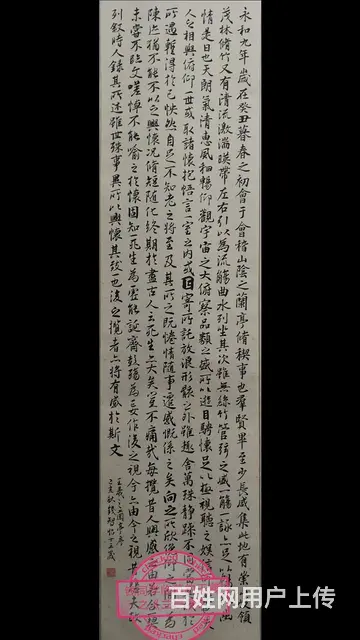 永和九年歲在癸丑暮春之初會于會稽山陰之蘭亭脩稧事也群賢畢至少長咸集此地有崇領
茂林脩竹又有清流激湍暎帶左右引以為流觴曲水列坐其次雖無絲竹管弦之盛一觴一詠亦足以幽
情是日也天朗氣清惠風和暢仰觀宇宙之大俯察品類之盛所以遊目騁懷足以極視聽之娛
人之相與俯仰一世或取諸懷抱悟言一室之內或因寄所託放浪形骸之外雖趣舍萬殊靜躁不同當其
所遇暫得於己快然自足不知老之將至及其所之既惓情隨事遷感慨係之矣向之所欣俛仰之為
陳迹猶不能不以之興懷況脩短隨化終期於盡古人云死生亦大矣豈不痛哉每攬昔人興感之由若合一
未嘗不臨文嗟悼不能喻之於懷固知一死生為虛誕齊彭殤為妄作後之視今亦由今之視昔悲夫故
列叙時人錄其所述雖世殊事異所以興懷其致一也後之攬者亦將有感於斯文
王羲之蘭亭序
百姓网用户上传